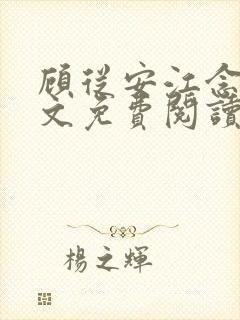 顧從安江念
文免費閱讀
楊之輝